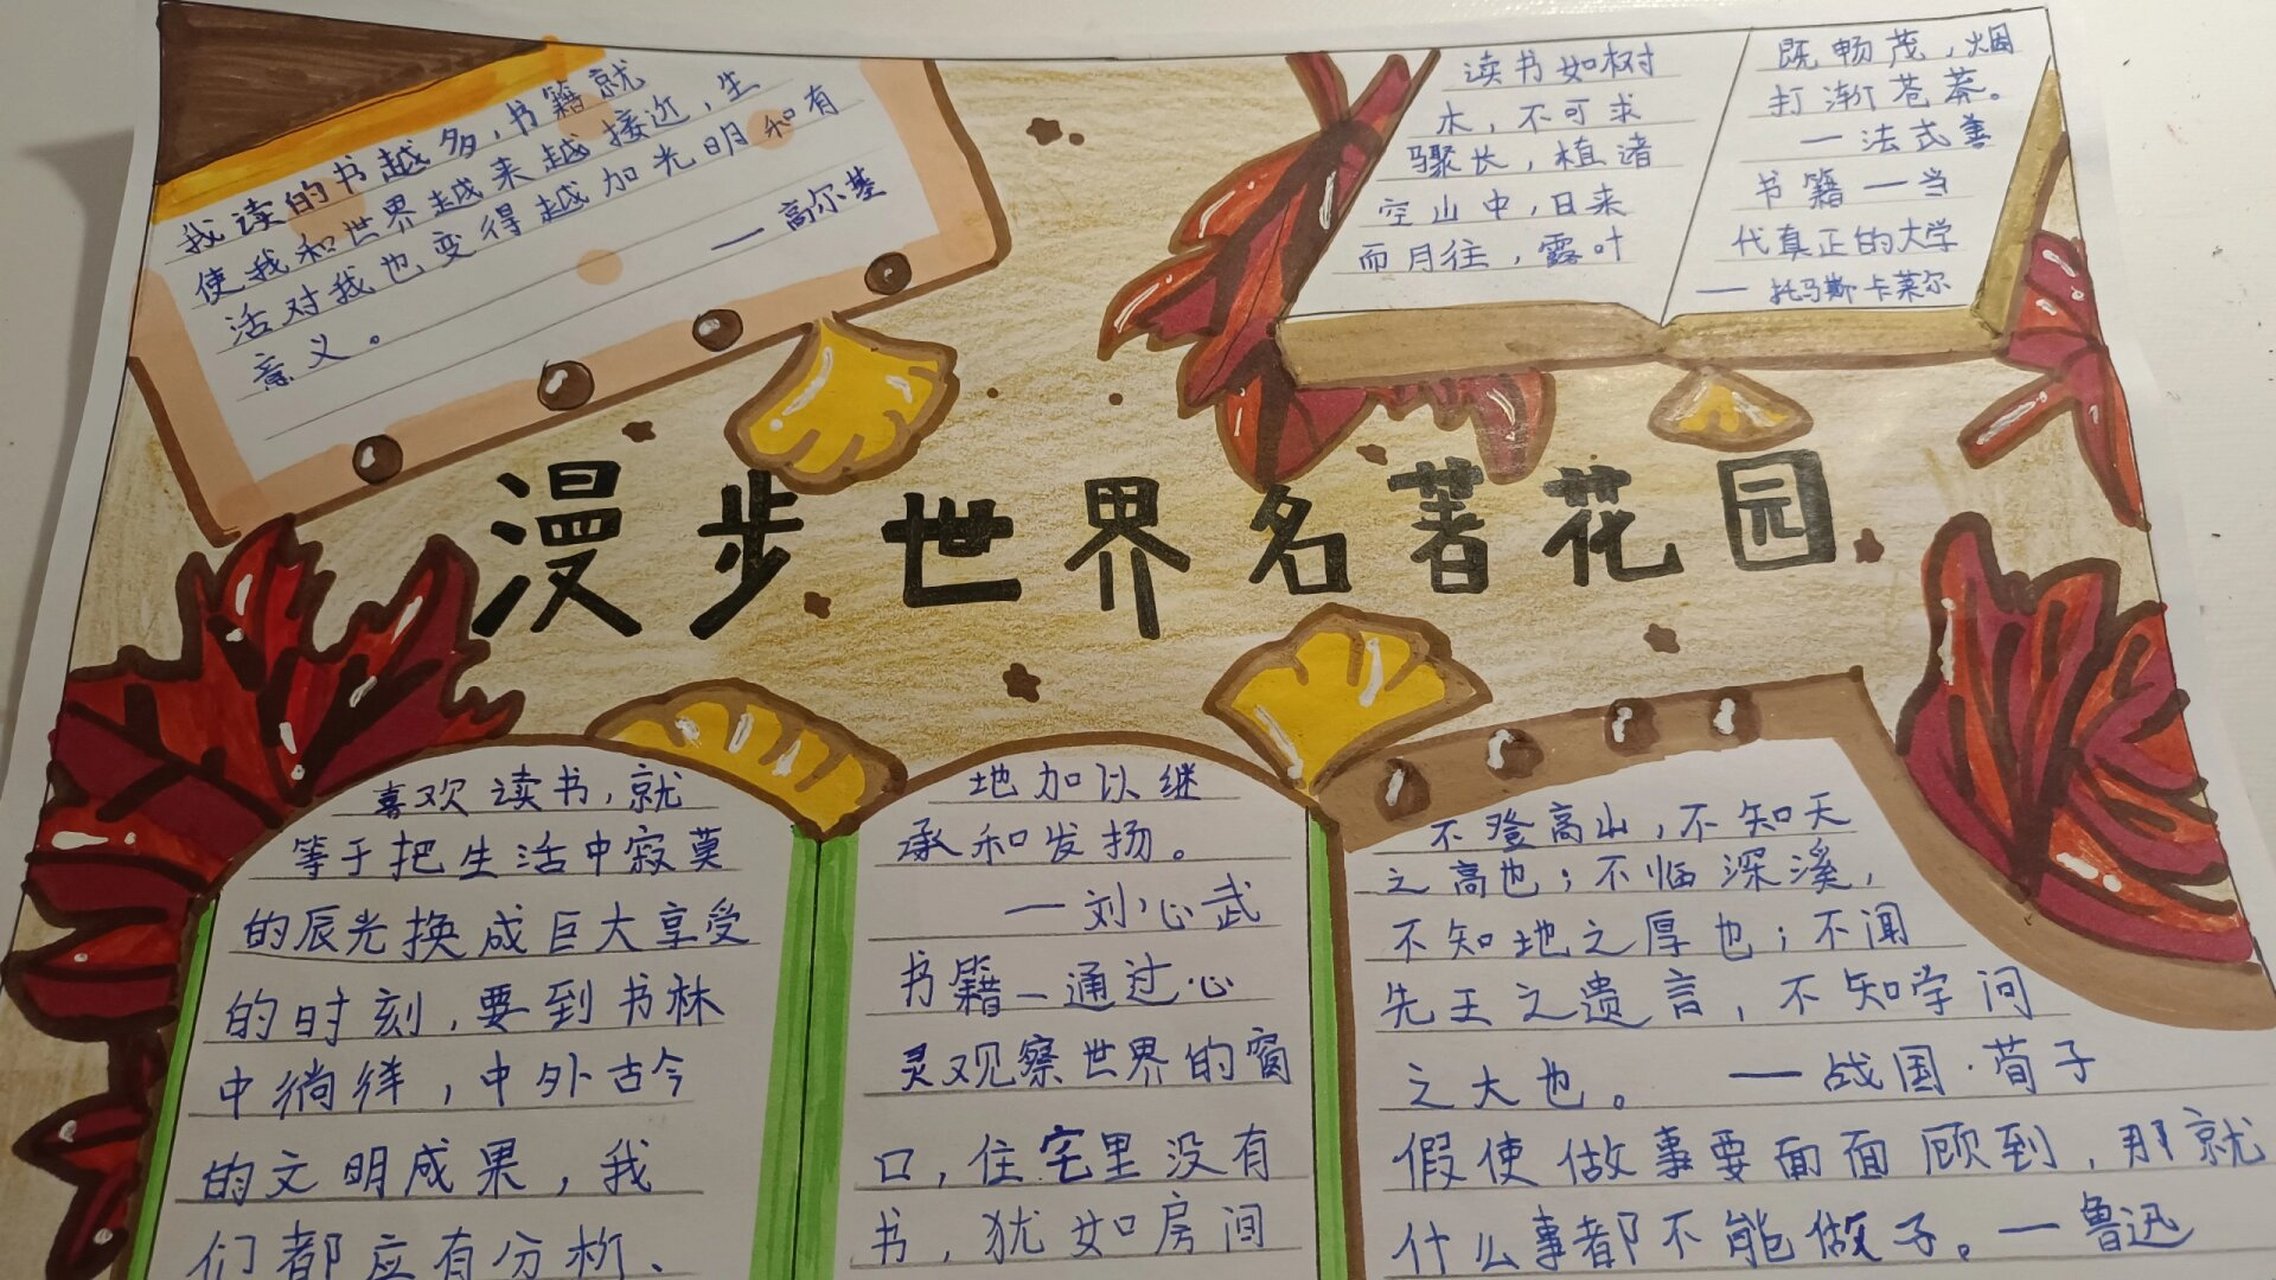 我读的书越多,书籍就
使我和世界越来越接近,生
活对我也变得越加光明和有
意义。
—高尔基
读书如树
木,不可求
骤长,植诸
空山中,日来
而月往,露叶
既畅茂,烟
打渐苍茶。
—法式善
书籍—当
代真正的大学
—托马斯·卡莱尔
漫步世界名著花园
喜欢读书,就
等于把生活中寂莫
的辰光换成巨大享受
的时刻,要到书林
中徜徉,中外古今
的文明成果,我
们都应有分析、
地加以继
承和发扬。
—刘心武
书籍—通过心
灵观察世界的窗
口,住宅里没有
书,犹如房间
不登高山,不知天
之高也;不临深溪,
不知地之厚也;不闻
先王之遗言,不知学问
之大也。 —战国·荀子
假使做事要面面顾到,那就
什么事都不能做了。—鲁迅